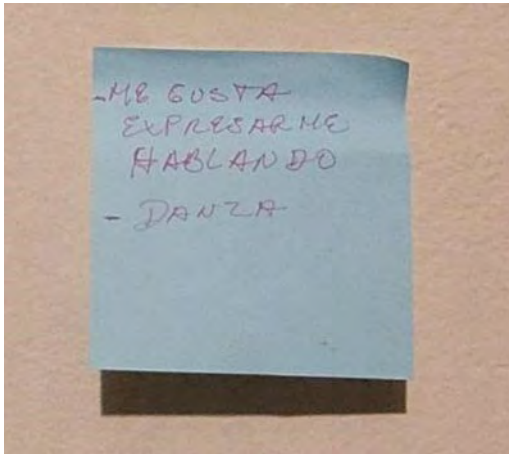 - ME GUSTA
EXPRESARME
HABLANDO
- DANZA